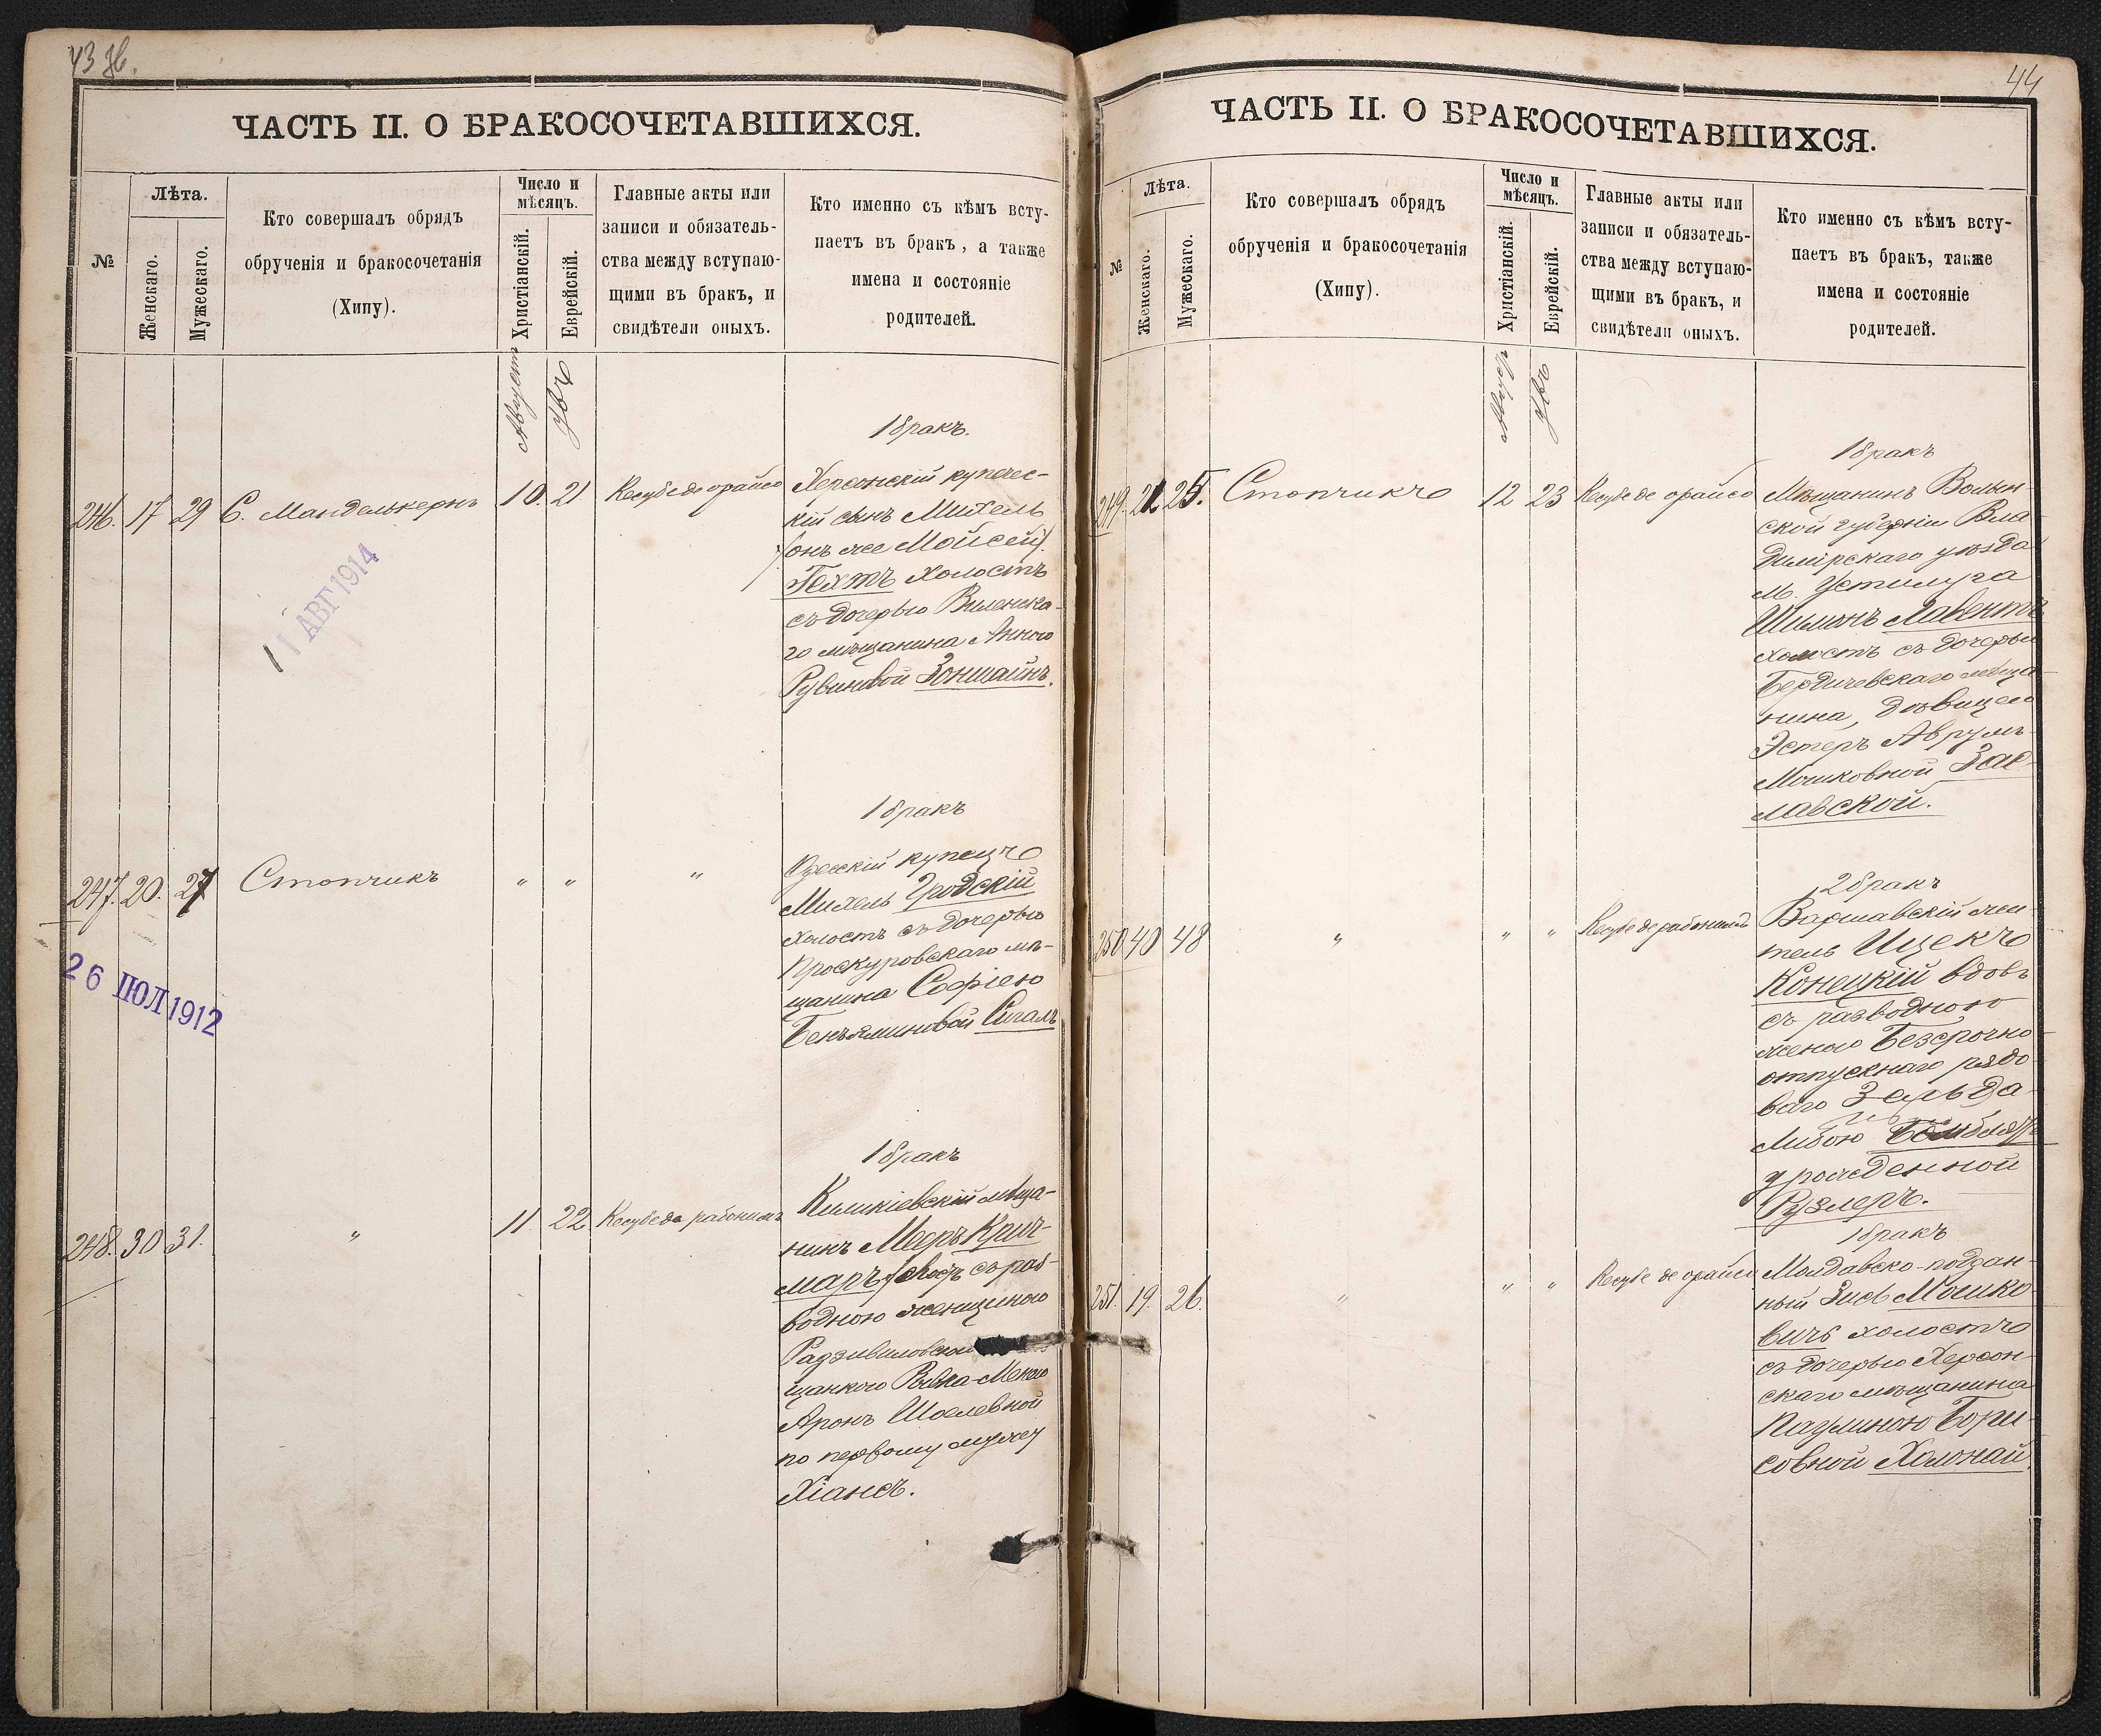 43 об.
ЧАСТЬ II. О БРАКОСОЧЕТАВШИХСЯ.
№
Лѣта.
Женскаго.
Мужескаго.
Кто совершалъ обрядъ
обрученія и бракосочетанія
(Хипу).
Число и
мѣсяцъ.
Христіанскій.
Еврейскій.
Главные акты или
записи и обязатель-
ства между вступаю-
щими въ бракъ, и
свидѣтели оныхъ.
Кто именно съ кѣмъ всту-
паетъ въ бракъ, а также
имена и состояніе
родителей.
Августъ
1 бракъ.
246. 17 29 С. Манделькернъ 10. 21 Кесубе де орайсо
Херсонскій купечес-
кій сынъ Михель
(онъ же Мойсей)
Гехтъ холостъ
съ дочерью Виленска-
го мѣщанина Анною
Рувиновой Зонштайнъ.
11 АВГ 1914
1 бракъ
247. 20. 27 Стопчикъ " " "
Одесскій купецъ
Михель Гродскій
холостъ съ дочерью
Проскуровскаго мѣ-
щанина Софіею
Беньяминовой Сигалъ
26 ІЮЛ 1912
1 бракъ
248. 30 31. " 11 22 Кесубе де рабонимъ
мѣща-
нинъ Мееръ Крич-
маръ съ раз-
водною женщиною
Радзивиловской
щанкою Ривка-Меню
Аронъ Шоелевной
по первому мужу
44
ЧАСТЬ II. О БРАКОСОЧЕТАВШИХСЯ.
№
Лѣта.
Женскаго.
Мужескаго.
Кто совершалъ обрядъ
обрученія и бракосочетанія
(Хипу).
Число и
мѣсяцъ.
Христіанскій.
Еврейскій.
Главные акты или
записи и обязатель-
ства между вступаю-
щими въ бракъ, и
свидѣтели оныхъ.
Кто именно съ кѣмъ всту-
паетъ въ бракъ, также
имена и состояніе
родителей.
1 бракъ
249. 21 25. Стопчикъ 12 23 Кесубе де орайсо
Мѣщанинъ Волын-
ской губерніи Вла-
димірскаго уѣзда
м. Устилуга
Шимонъ Лавентъ
холостъ съ дочерью
Бердичевскаго мѣща-
нина, дѣвицею
Эстеръ Аврумъ-
Мошковной Зас-
лавской.
2 бракъ
250 40 48 " " " Кесубе де рабонимъ
Варшавскій жи-
тель Ицекъ
Конецкій вдовъ
съ разводною
женою Безсрочно-
отпускнаго рядо-
ваго Зельда
Либою
урожденной
Рузлеръ.
1 бракъ
251. 19. 26. " " " Кесубе де орайсо
Молдавско-подан-
ный Зисъ Мошко-
вичъ холостъ
съ дочерью Херсон-
скаго мѣщанина
Паулиною Бори-
совной Холонай